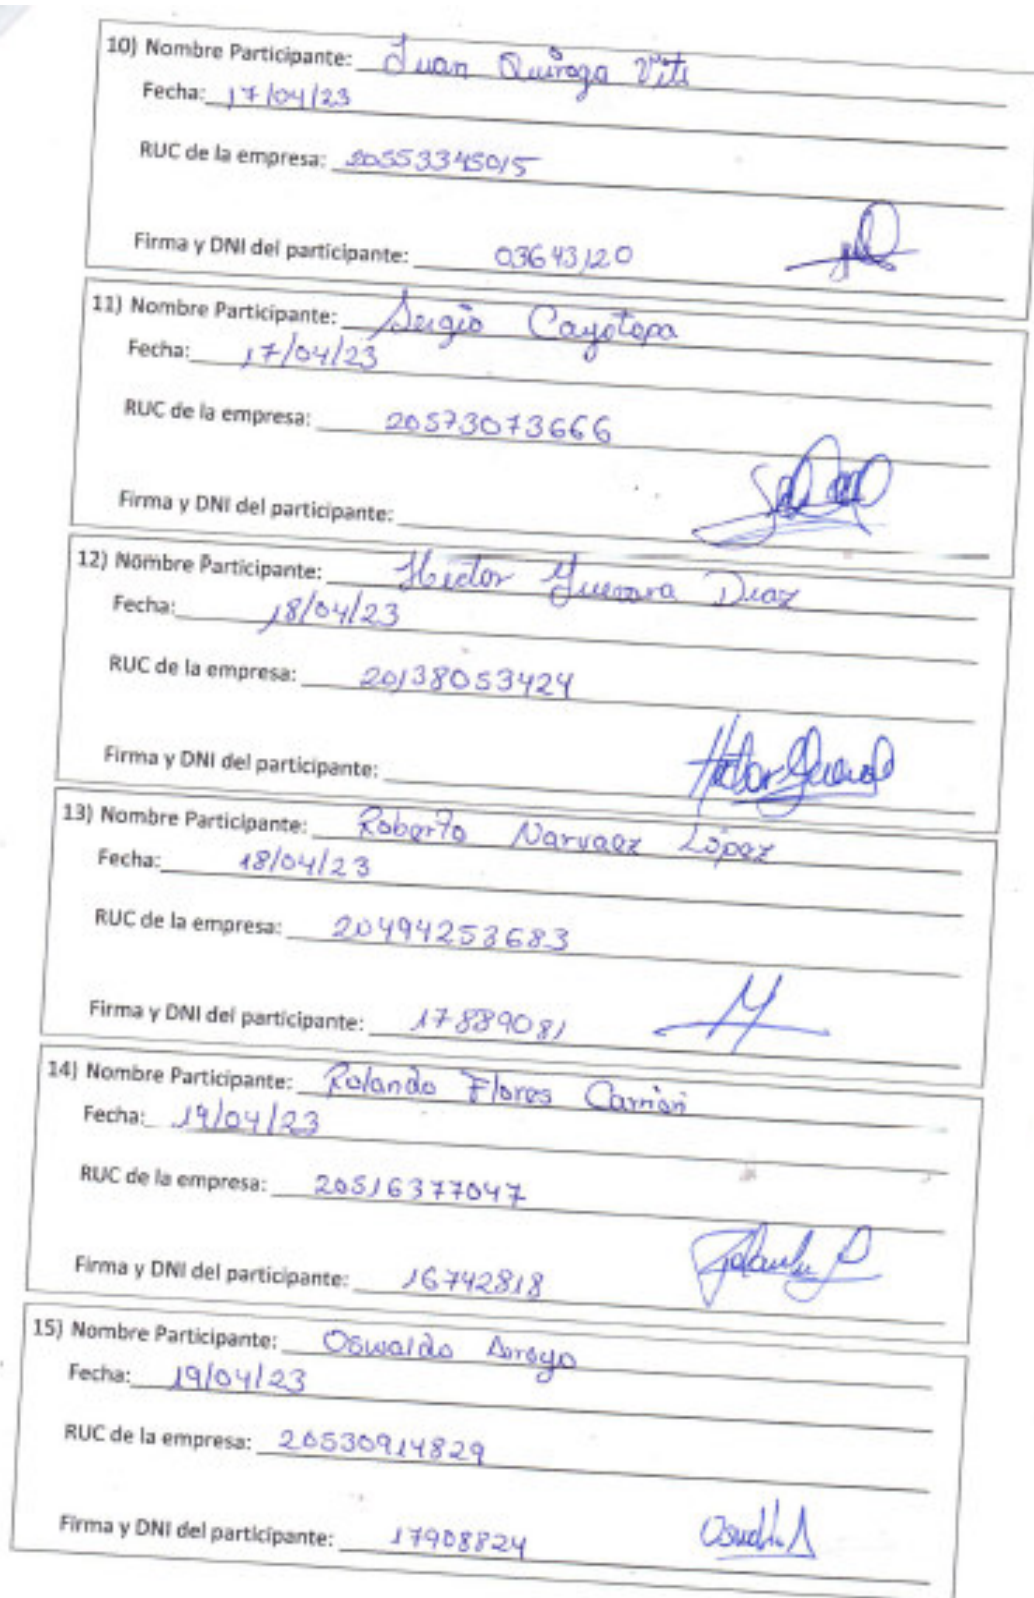 10) Nombre Participante: Juan Quiroga Vite
Fecha: 17/04/23
RUC de la empresa: 20553345015
Firma y DNI del participante: 03643120
11) Nombre Participante: Sergio Cayotopa
Fecha: 17/04/23
RUC de la empresa: 20573073666
Firma y DNI del participante:
12) Nombre Participante: Hector Guevara Diaz
Fecha: 18/04/23
RUC de la empresa: 20138053424
Firma y DNI del participante:
13) Nombre Participante: Roberto Narvaez López
Fecha: 18/04/23
RUC de la empresa: 20494253683
Firma y DNI del participante: 17889081
14) Nombre Participante: Rolando Flores Carrión
Fecha: 19/04/23
RUC de la empresa: 20516377047
Firma y DNI del participante: 16742818
15) Nombre Participante: Oswaldo Arroyo
Fecha: 19/04/23
RUC de la empresa: 20530914829
Firma y DNI del participante: 17908824